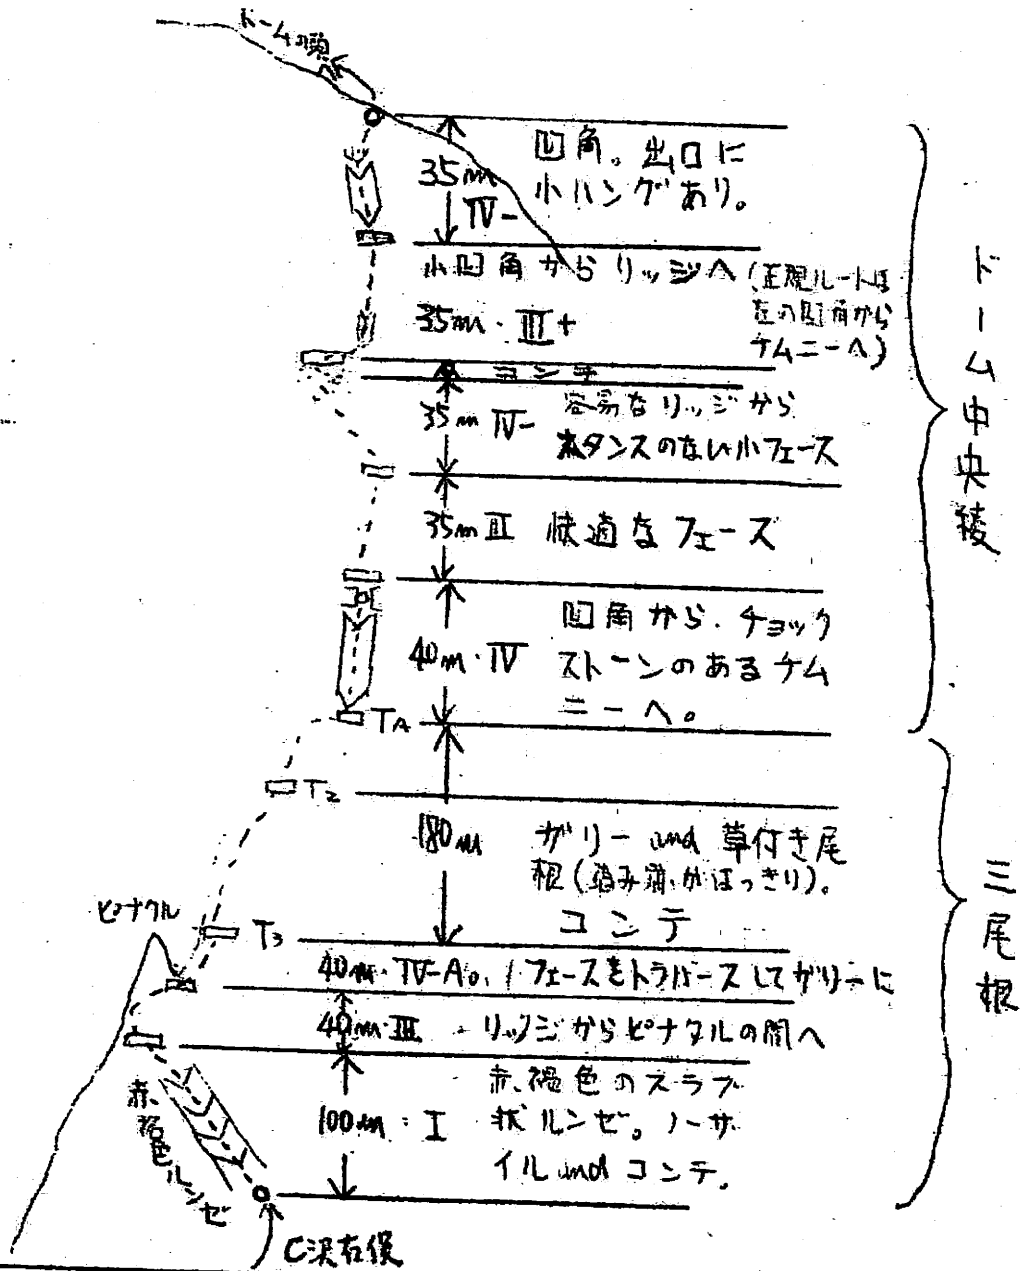 ドームの頭
35m
IV-
凹角。出口に
小ハングあり。
小凹角からリッジへ(正規ルートは
左の凹角から
チムニーへ)
35m・III+
コンテ
35m IV-
容易なリッジから
スタンスのない小フェース
35m III 快適なフェース
40m・IV
凹角から、チョック
ストーンのあるチム
ニーへ。
TA
T2
180m
ガリー and 草付き尾
根(踏み跡がはっきり)。
コンテ
T3
ピナクル
40m・IV-A0, フェースをトラバースしてガリーに
40m・III リッジからピナクルの間へ
100m・I
赤褐色のスラブ
状ルンゼ。ノーザ
イル and コンテ。
赤褐色ルンゼ
C沢右俣
ドーム中央稜
三尾根